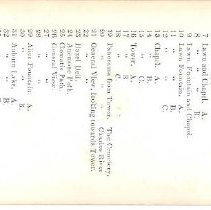 7 Lawn and Chapel. A.
8 " " B.
9 Lawn, Fountain and Chapel.
10 Lawn Fountain. A.
11 " " B.
12 " " C.
13 Chapel. A.
14 " B.
15 " C.
16 Tower. A.
17 " B.
18 " C.
19 Panorama from Tower. The Cemetery.
20 " " Charles River.
21 General View, looking towards Tower.
22 " "
23 Hazel Dell.
24 Harmony Path.
25 Clematis Path.
26 General View.
27 " "
28 "
29 Alice Fountain. A.
30 " " B.
31 Auburn Lake. A.
32 " " B.